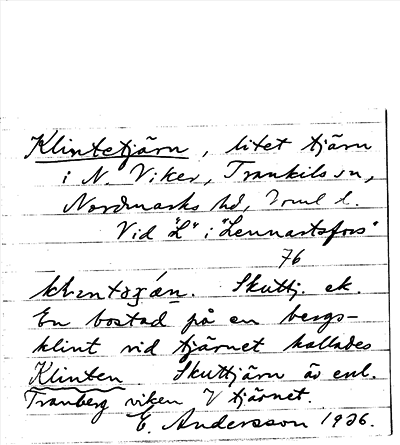 Klintetjärn, litet tjärn
i N. Viker, Trankils sn,
Nordmarks hd, Vrml l.
Vid "L" i "Lennartsfors"
76
Skuttj. ek.
En bostad på en bergs-
klint vid tjärnet kallades
Klinten Skuttjärn är enl.
Tranberg viken V tjärnet.
E. Andersson 1936.